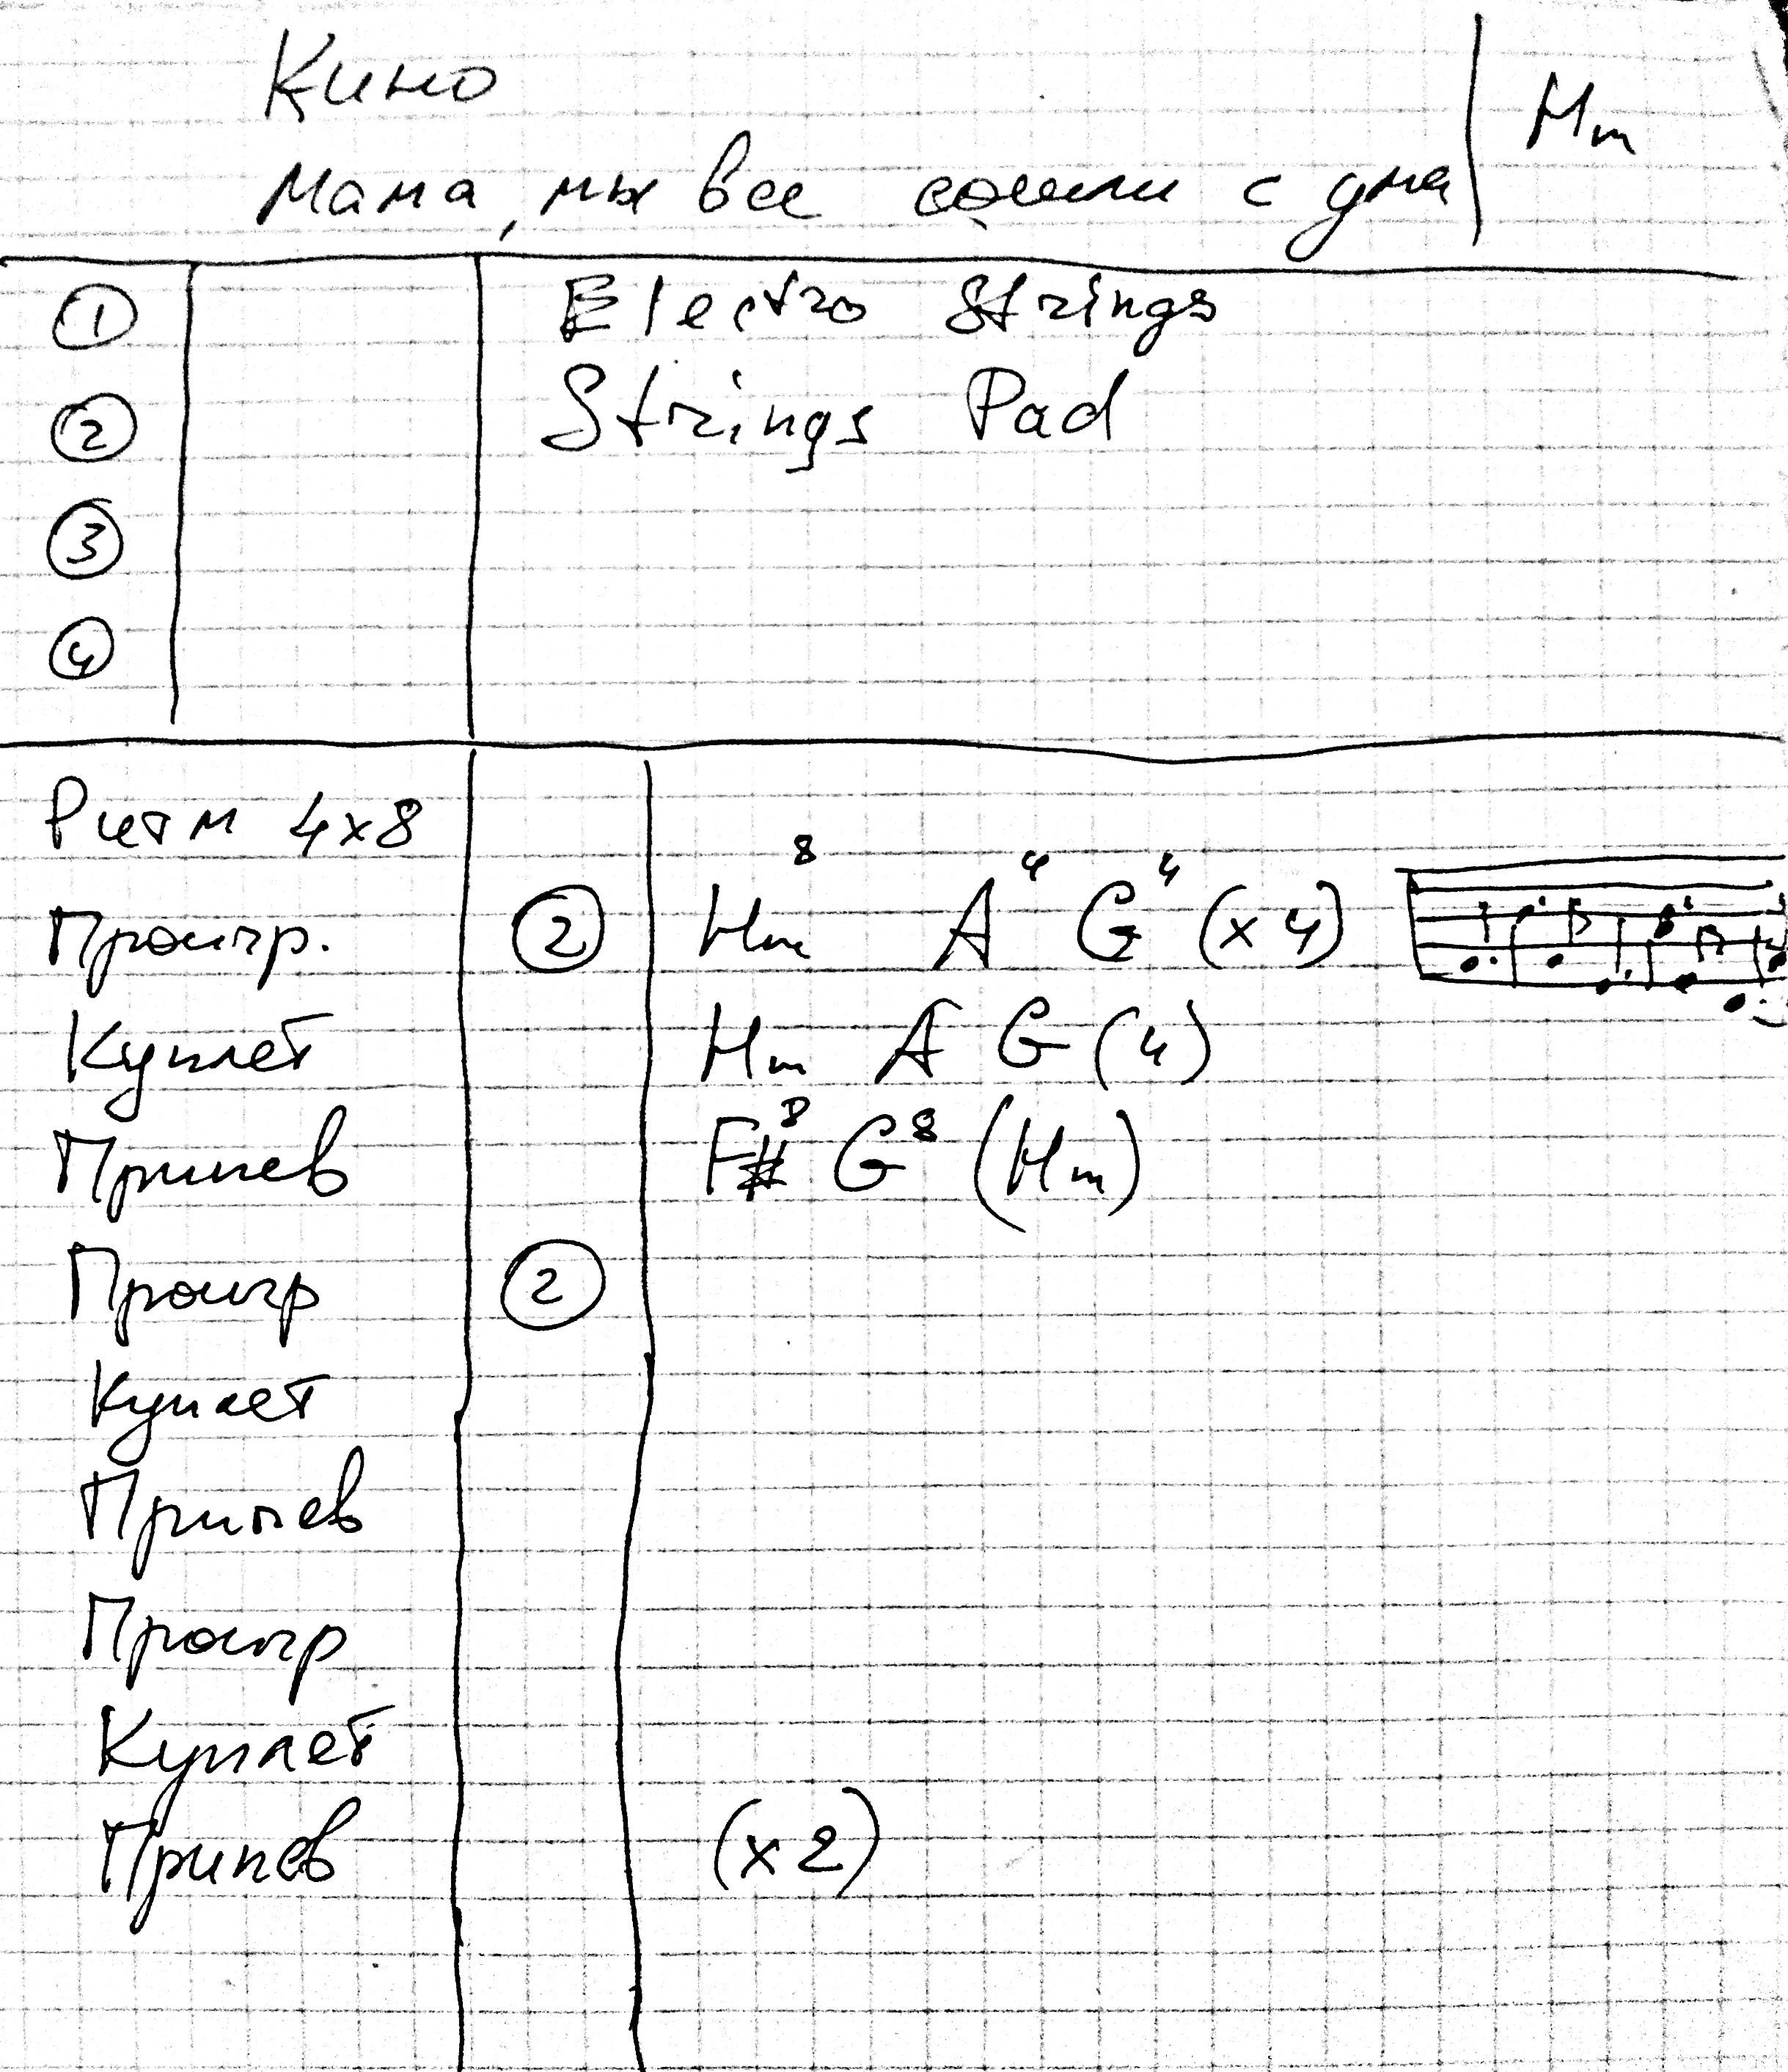 Кино
Мама, мы все сошли с ума | Hm
① Electro Strings
② Strings Pad
③
④
Ритм 4x8
Проигр. ② Hm⁸ A⁴ G⁴ (x4)
Куплет Hm A G (4)
Припев F#⁸ G⁸ (Hm)
Проигр ②
Куплет
Припев
Проигр
Куплет
Припев (x2)